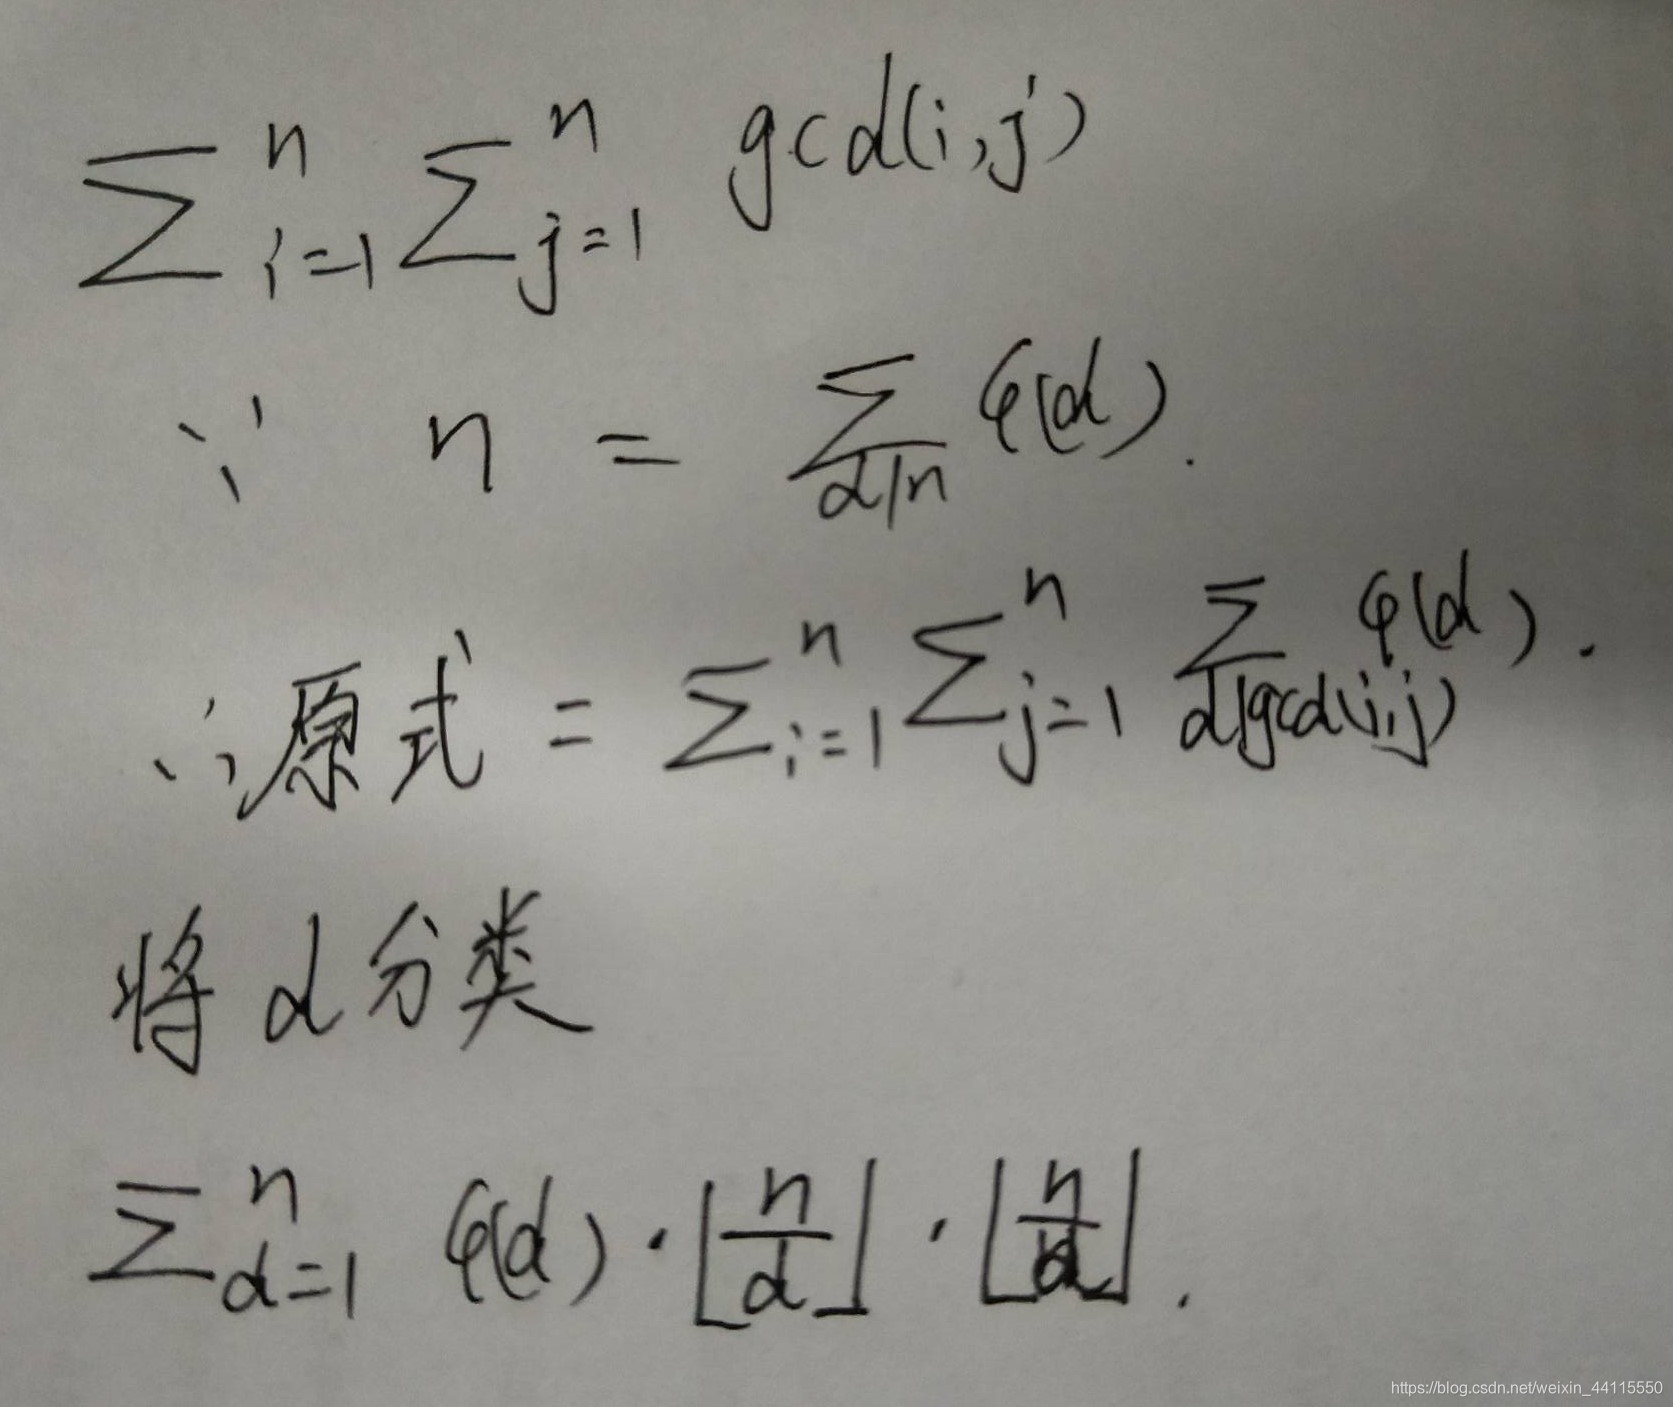 ∑_{i=1}^{n} ∑_{j=1}^{n} gcd(i,j)
∵ n = ∑_{d|n} φ(d).
∴原式 = ∑_{i=1}^{n} ∑_{j=1}^{n} ∑_{d|gcd(i,j)} φ(d).
将 d 分类
∑_{d=1}^{n} φ(d)·⌊n/d⌋·⌊n/d⌋.
https://blog.csdn.net/weixin_44115550